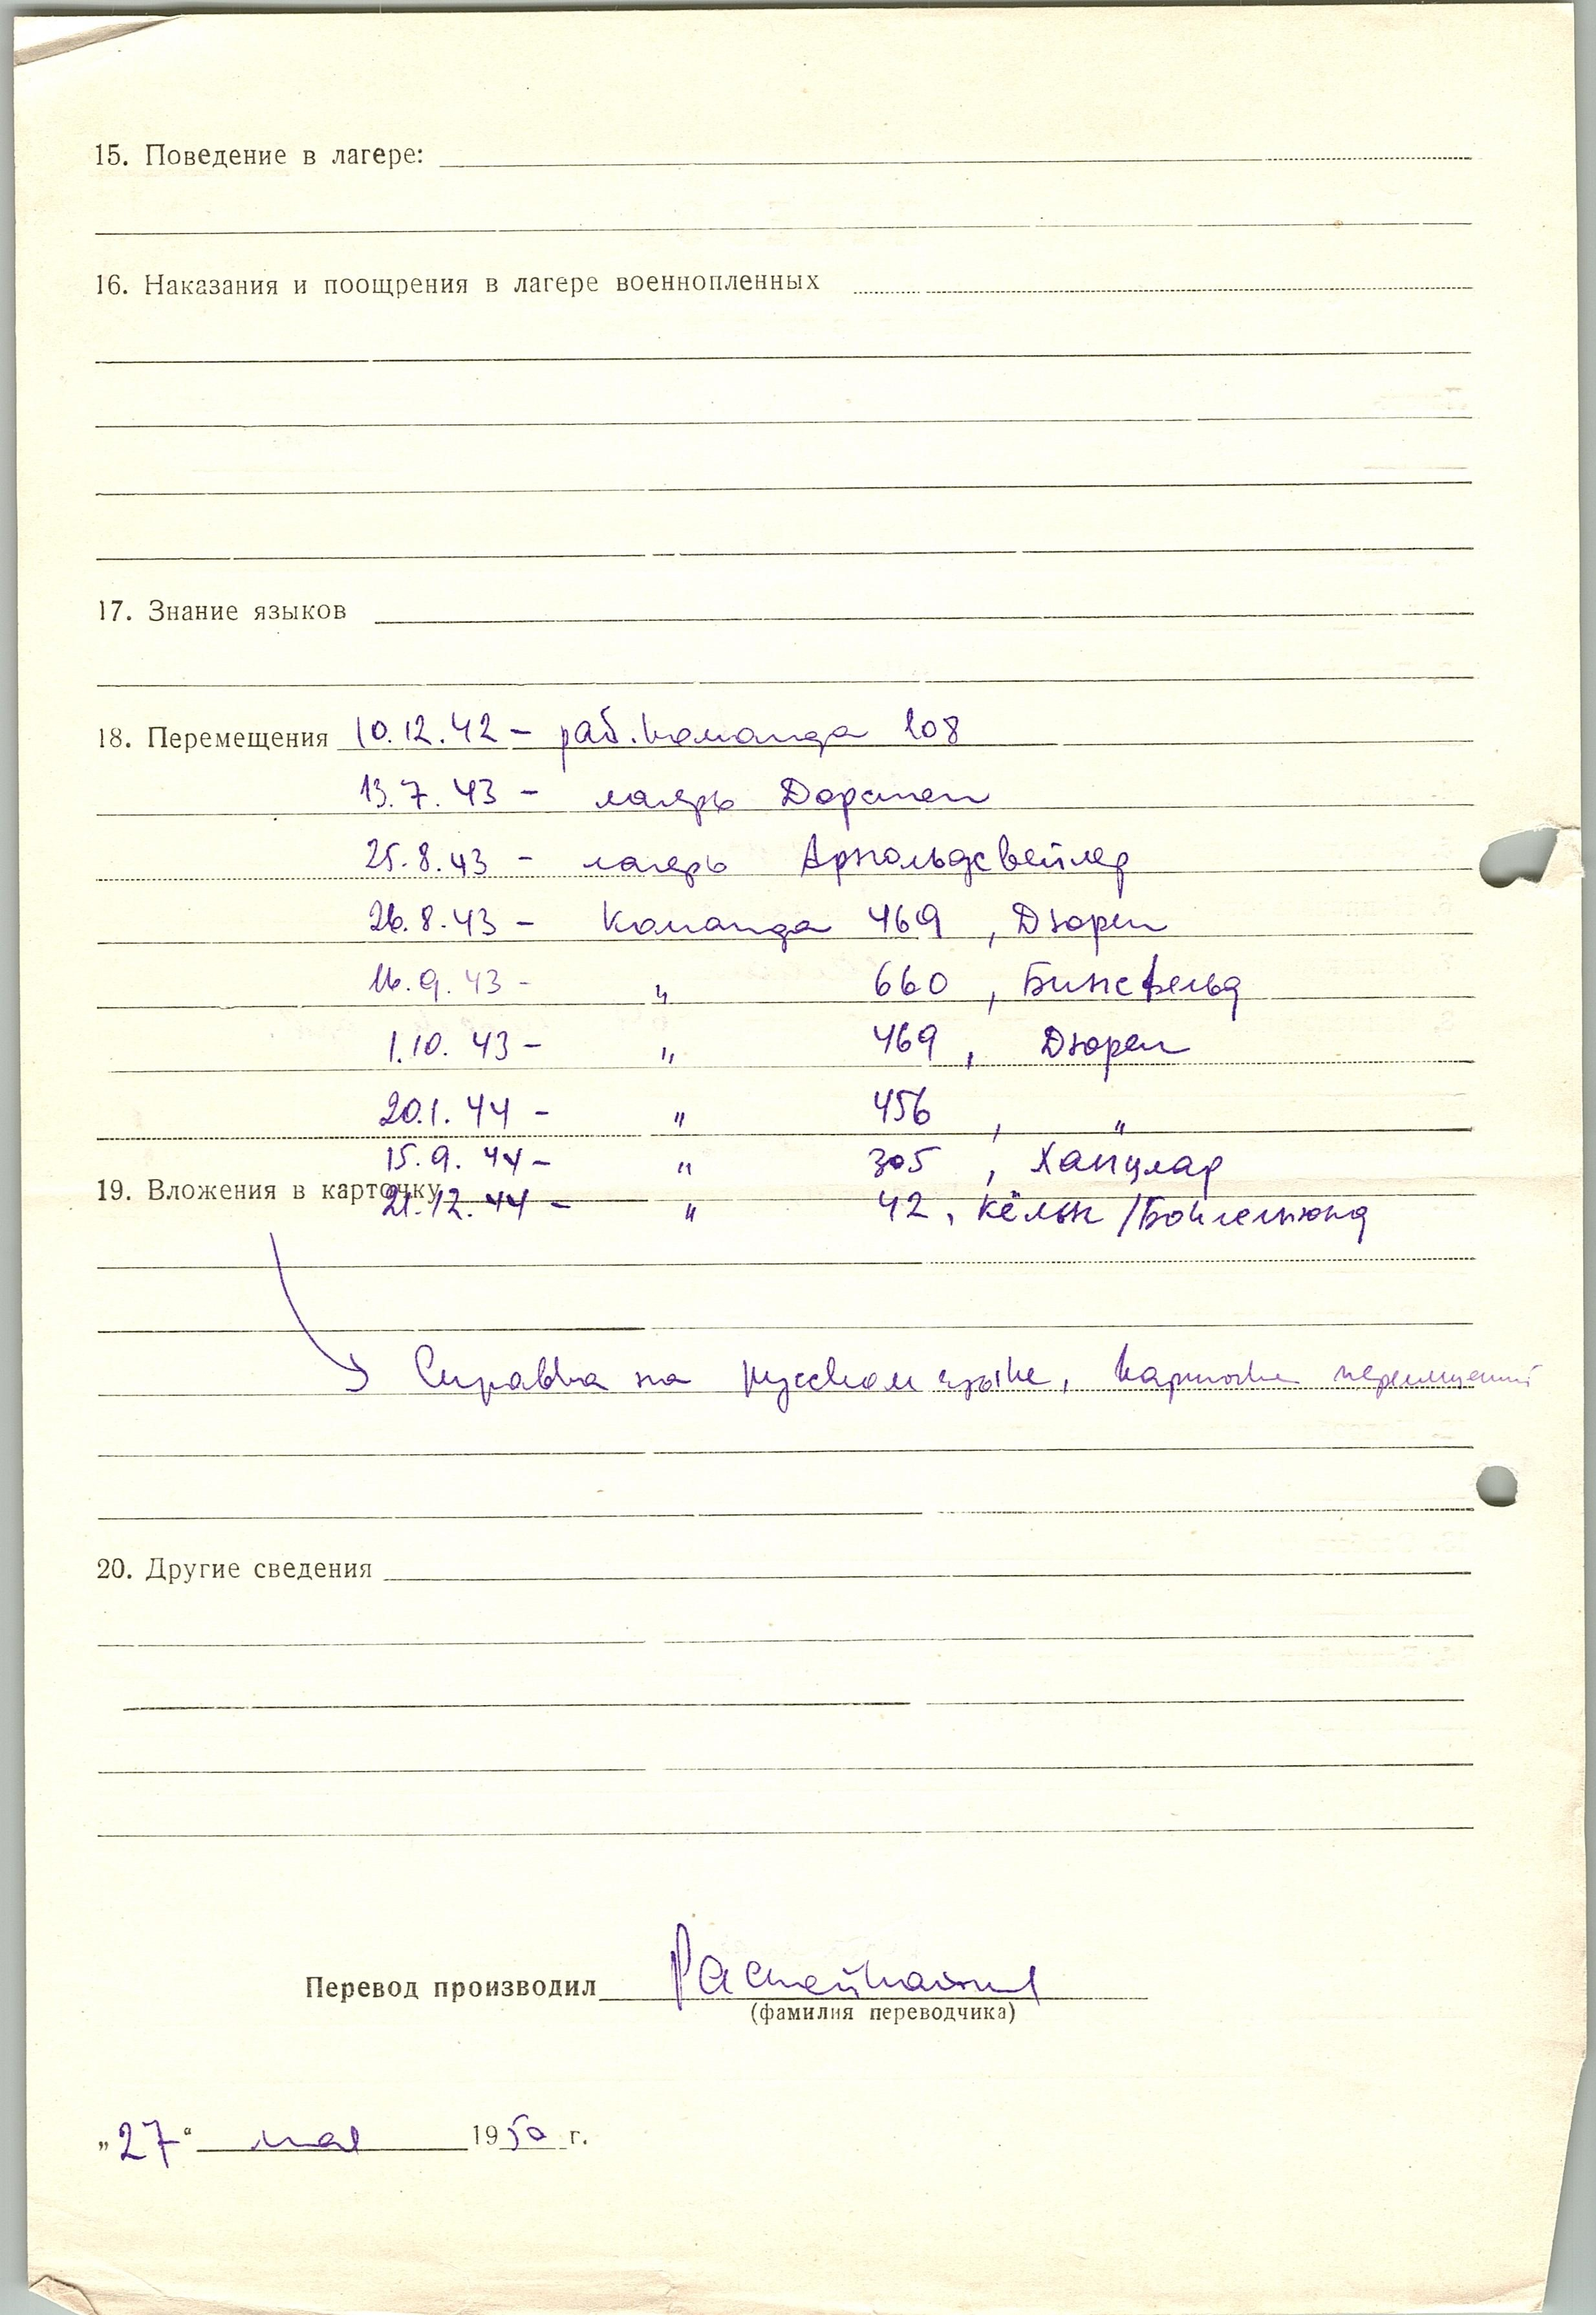 15. Поведение в лагере:
16. Наказания и поощрения в лагере военнопленных
17. Знание языков
18. Перемещения 10.12.42 – раб. команда 108
13.7.43 – лагерь Дорстен
25.8.43 – лагерь Арнольдсвейлер
26.8.43 – команда 469, Дюрен
16.9.43 – " 660, Бинсфельд
1.10.43 – " 469, Дюрен
20.1.44 – " 456, "
15.9.44 – " 305, Хангелар
19. Вложения в карточку
21.12.44 – " 42, Кёльн /
Справка на русском языке, карточка перемещений
20. Другие сведения
Перевод производил
(фамилия переводчика)
„27“ мая 1950 г.